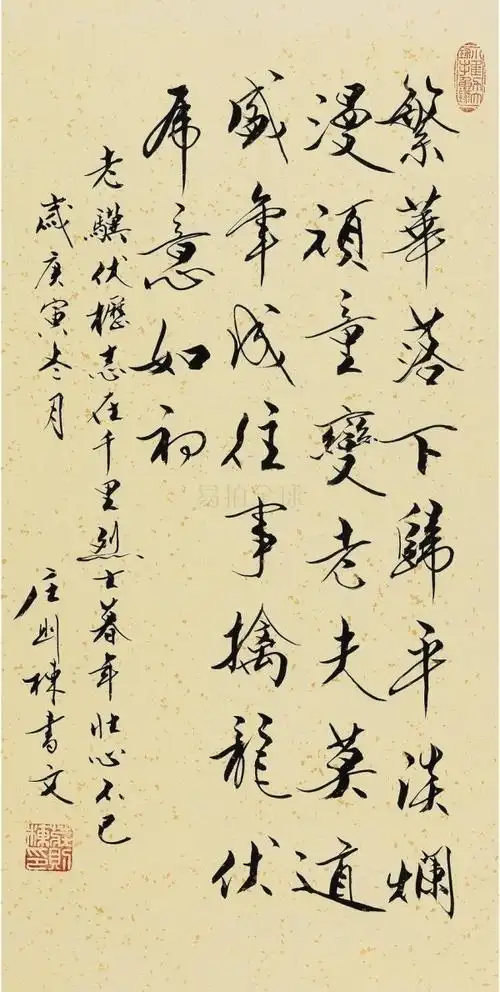 繁華落下歸平淡爛
漫頑童變老夫莫道
盛年成往事擒龍伏
虎意如初
老驥伏櫪志在千里烈士暮年壯心不已
歲庚寅冬月
庄则棟書文
莊則棟印
易拍全球